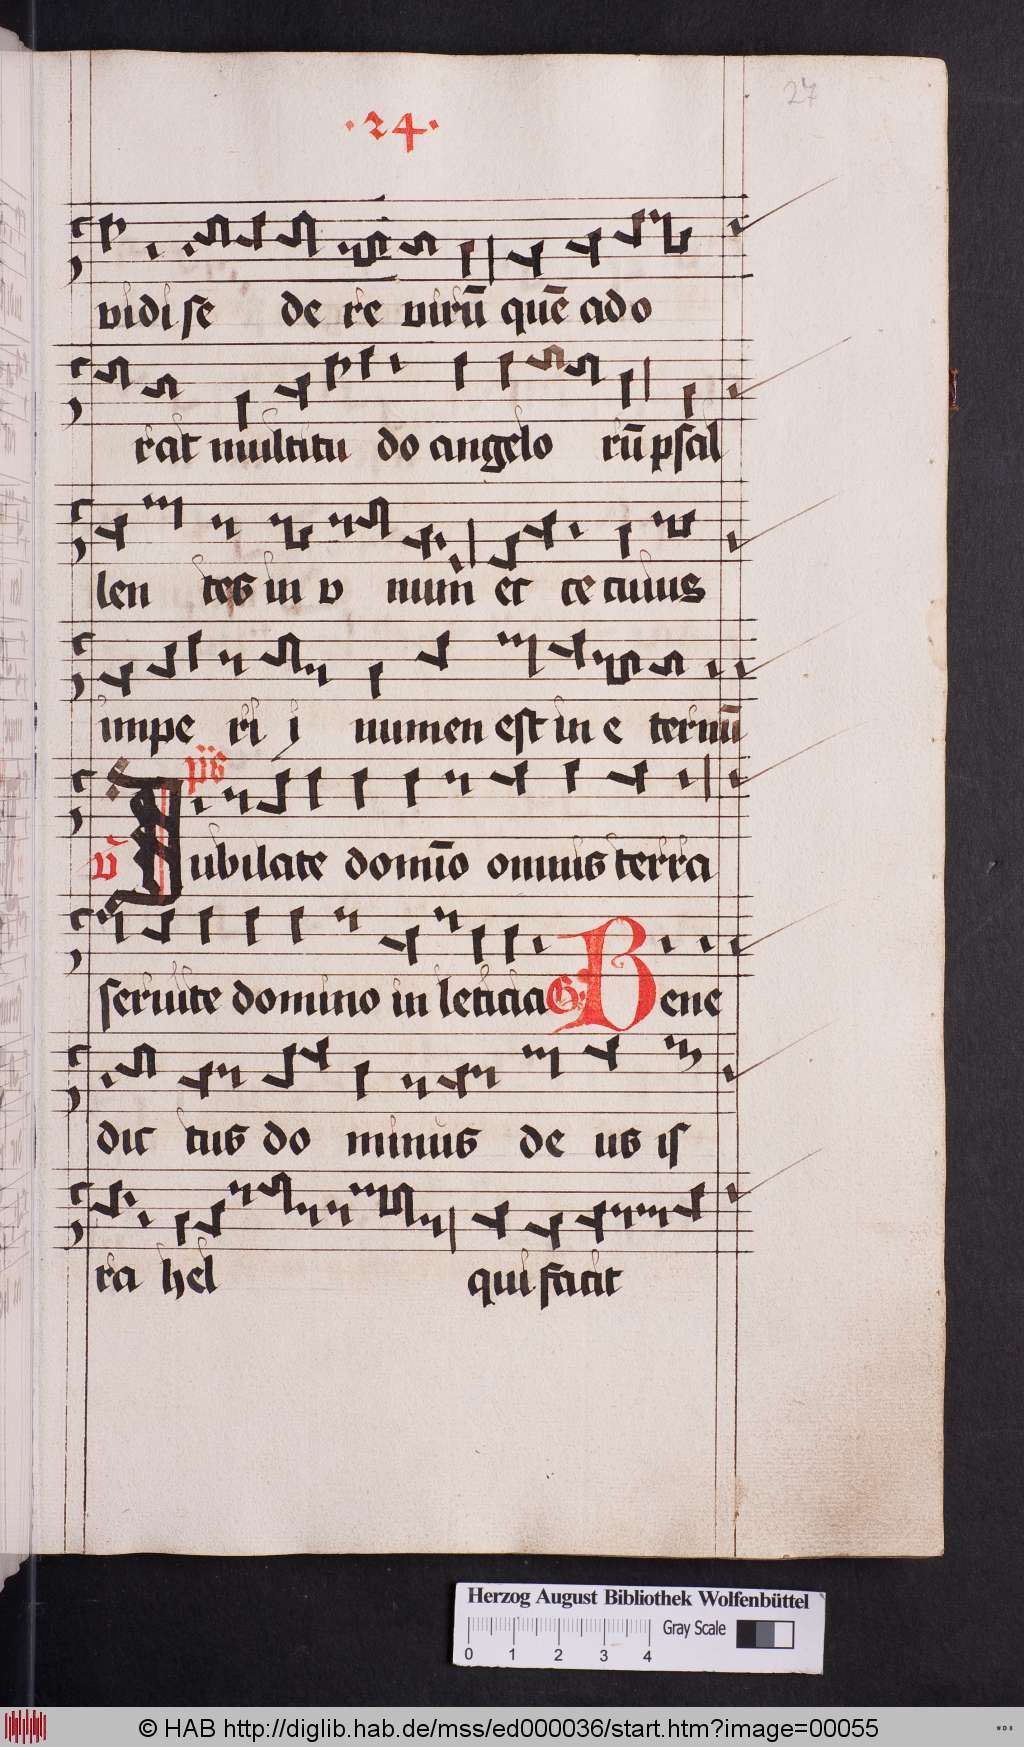 27
·24·
vidi se de re virū quē ado
rat multitu do angelo rū psal
len tes in v num et ce cuius
impe ri j numen est in e ternū
p̄s
v̄ Jubilate domīo omnis terra
seruite domino in leticia G Bene
dic tus do minus de us is
ra hel qui facit
Herzog August Bibliothek Wolfenbüttel
Gray Scale
0 1 2 3 4
© HAB http://diglib.hab.de/mss/ed000036/start.htm?image=00055